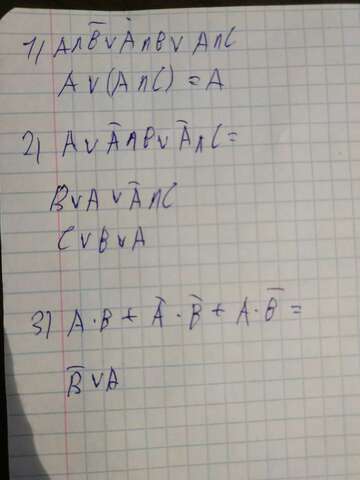 1) A∧B̅∨A∧B∨A∧C
A∨(A∧C)=A
2) A∨A̅∧B∨A̅∧C=
B∨A∨A̅∧C
C∨B∨A
3) A·B+A̅·B̅+A·B̅=
B̅∨A